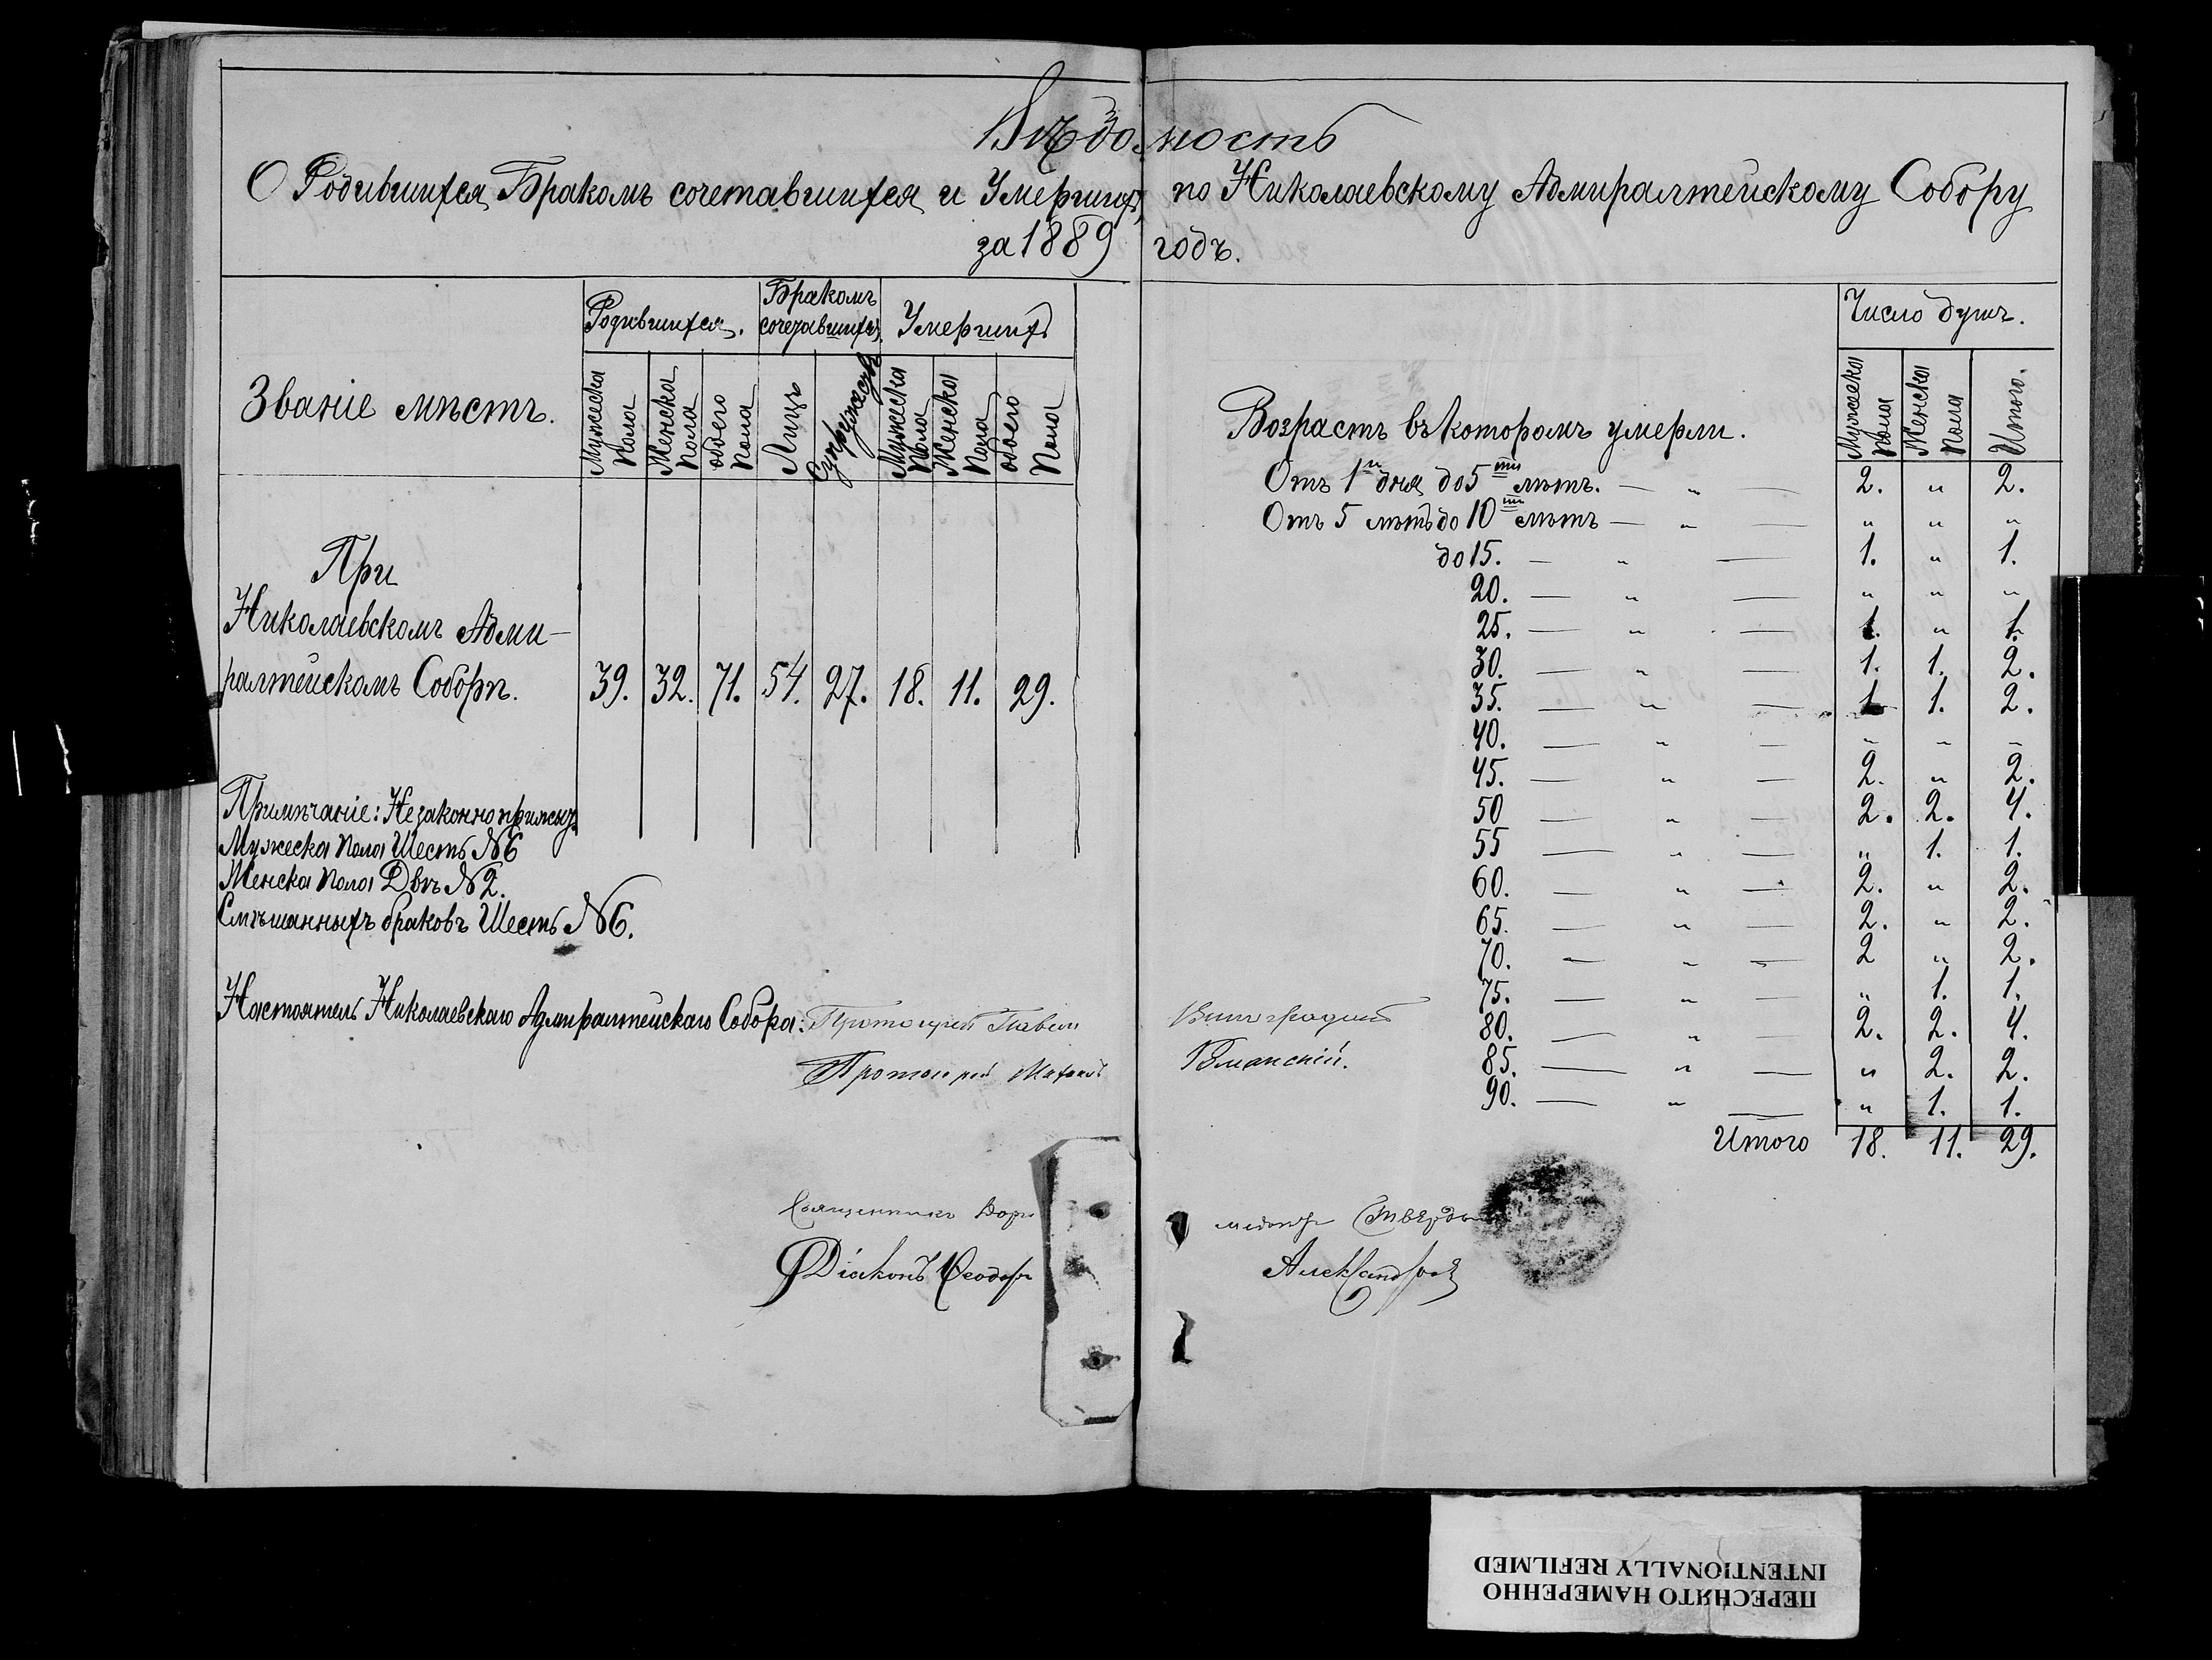 Вѣдомость
О Родившихся, Бракомъ сочетавшихся и Умершихъ по Николаевскому Адмиралтейскому Собору
за 1889 годъ.
Званіе мѣстъ.
Родившихся.
Бракомъ сочетавшихся.
Умершихъ
Мужеска пола
Женска пола
обоего пола
Лицъ
Супружествъ
Мужеска Пола
Женска Пола
обоего Пола
При
Николаевскомъ Адми-
ралтейскомъ Соборѣ. 39. 32. 71. 54. 27. 18. 11. 29.
Примѣчаніе: Незаконноприжсыхъ
Мужеска пола Шесть №6
Женска пола Двѣ №2.
Смѣшанныхъ браковъ Шесть №6.
Настоятель Николаевскаго Адмиралтейскаго Собора: Протоіерей Павелъ
Протоіерей Михаилъ
Священникъ
Діаконъ Ѳеодоръ
Возрастъ въ которомъ умерли.
Число душъ.
Мужеска пола
Женска пола
Итого.
Отъ 1го дня до 5ти лѣтъ. — „ — 2. „ 2.
Отъ 5 лѣтъ до 10ти лѣтъ — „ — „ „ „
до 15. — „ — 1. „ 1.
20. — „ — „ „ „
25. — „ — 1. „ 1.
30. — „ — 1. 1. 2.
35. — „ — 1. 1. 2.
40. — „ — „ „ „
45. — „ — 2. „ 2.
50 — „ — 2. 2. 4.
55 — „ — „ 1. 1.
60. — „ — 2. „ 2.
65. — „ — 2. „ 2.
70. — „ — 2 „ 2.
75. — „ — „ 1. 1.
80. — „ — 2. 2. 4.
85. — „ — „ 2. 2.
90. — „ — „ 1. 1.
Итого 18. 11. 29.
Виноградовъ
Александровъ
ПЕРЕСНЯТО НАМЕРЕННО
INTENTIONALLY REFILMED